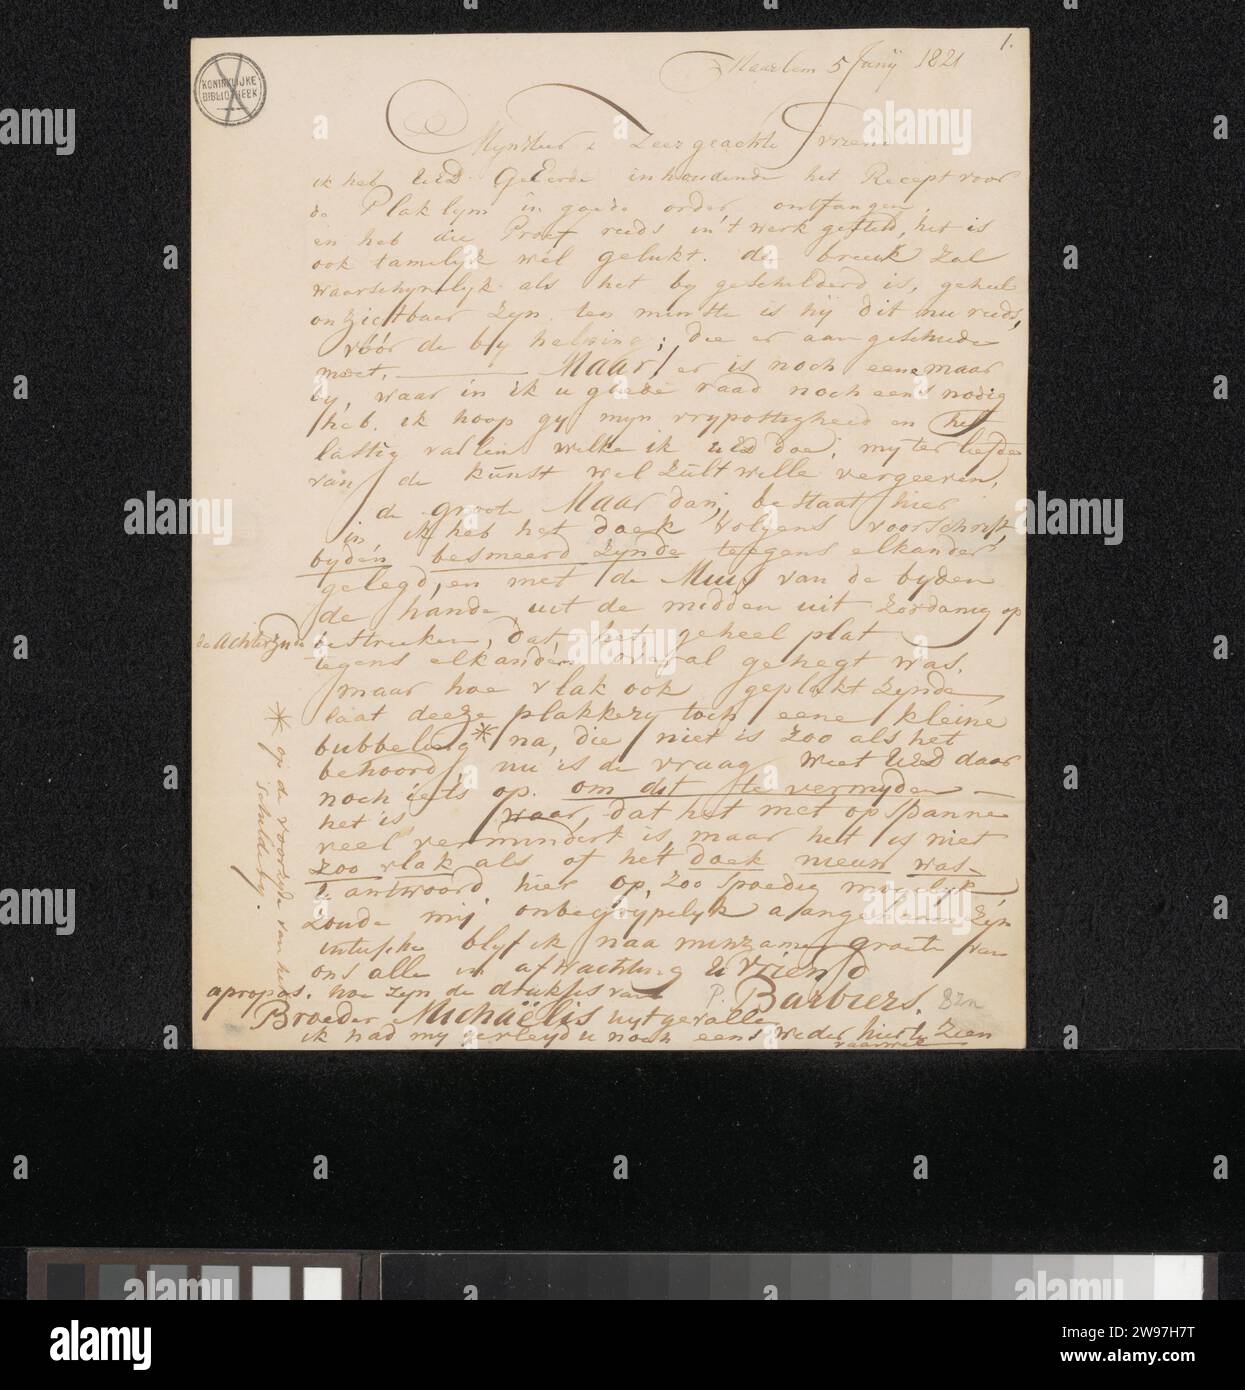 1.
KONINKLIJKE
BIBLIOTHEEK
Haarlem 5 Junij 1821
Mynheer & Zeer geachte vriend
ik heb UED. GeEerde inhoudende het Recept voor
de Plaklym in goede order ontfangen,
en heb die Proef reeds in't werk gesteld, het is
ook tamelyk wel gelukt. de breuk zal
waarschynelyk als het by geschilderd is, geheel
onzichtbaar zyn. ten minste is hij dit nu reeds,
vóór de by helping; die er aan geschiede
moet. Maar er is noch eene maar
by, waar in ik u goede raad noch eens nodig
heb. ik hoop gy myn vrypostigheid en het
lastig vallen welke ik UED doe, my ter liefde
van de kunst wel zult wille vergeeven.
de groote Maar dan, bestaat hier
in, ik heb het doek volgens voorschrift,
byden besmeerd zynde teegens elkander
gelegd, en met de Muis van de byden
de hande uit de midden uit zoodanig op
de achterzyde bestreeken, dat het geheel plat
tegens elkander overal gehegt was.
maar hoe vlak ook geplakt zynde
laat deeze plakkery toch eene kleine
bubbeling* na, die niet is zoo als het
behoord, nu is de vraag weet UED daar
noch iets op. om dit te vermyden —
het is waar, dat het met op spanne
veel vermindert is, maar het is niet
zoo vlak als of het doek nieuw was -
U antwoord hier op, zoo spoedig mogelyk
zoude mij onbegrypelyk aangenaam zyn
intusche blyf ik naa minzame groete van
ons alle in afwachting U vriend
P. Barbiers. 82n
apropos. hoe zyn de drukjes van
Broeder Michaëlis uytgevalle
ik had my verleyd u noch eens weder hier te zien
vaarwel
* op de voorzyde van het
schildery.